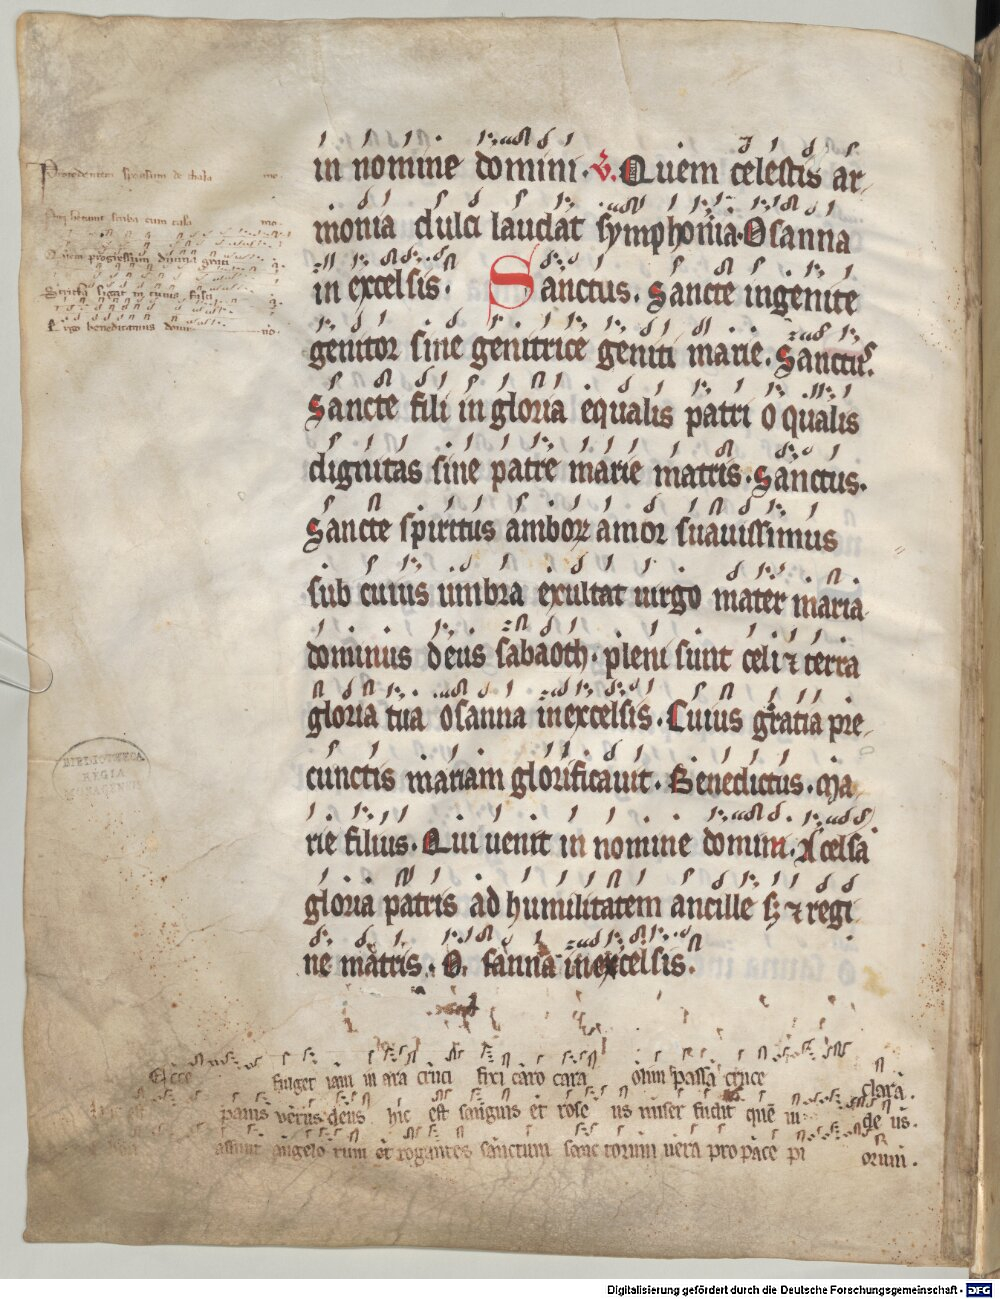 in nomine domini. V. Quem celestis ar-
monia dulci laudat symphonia. Osanna
in excelsis. Sanctus. Sancte ingenite
genitor sine genitrice geniti marie. Sanctus.
Sancte fili in gloria equalis patri o qualis
dignitas sine patre marie matris. Sanctus.
Sancte spiritus amboꝝ amor suauissimus
sub cuius umbra exultat uirgo mater maria
dominus deus sabaoth. pleni sunt celi ⁊ terra
gloria tua osanna in excelsis. Cuius gratia pre-
cunctis mariam glorificauit. Benedictus. Ma-
rie filius. Qui uenit in nomine domini. Excelsa
gloria patris ad humilitatem ancille sꝫ ⁊ regi
ne matris. O sanna in excelsis.
Procedentem sponsum de thala mo.
cum
Quem progressum
Ergo benedicamus domi no.
BIBLIOTHECA
REGIA
MONACENSIS
Ecce fulget iam in ara cruci fixi caro cara olim passa cruce clara.
panis verus deus hic est sanguis et rose us miser fudit quē iu de us.
assunt angelo rum et rogantes sanctum sanc torum vera pro pace pi orum.
Digitalisierung gefördert durch die Deutsche Forschungsgemeinschaft - DFG